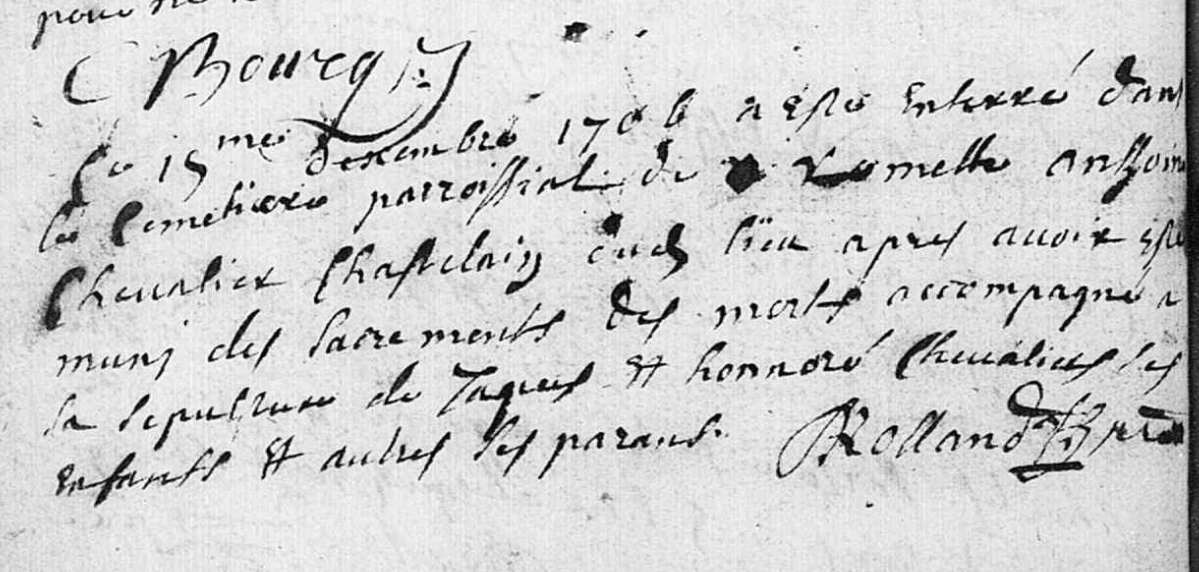 pour
Bourg
Le 15me decembre 1706 a este enterré dans
le cemetiere parroissial de Romette anthoine
Chevalier Chastelain dud lieu apres avoir este
muny des sacrements des morts accompagné a
sa sepulture de Jaques et honnoré Chevaliers ses
enfants et autres ses parans. Rolland